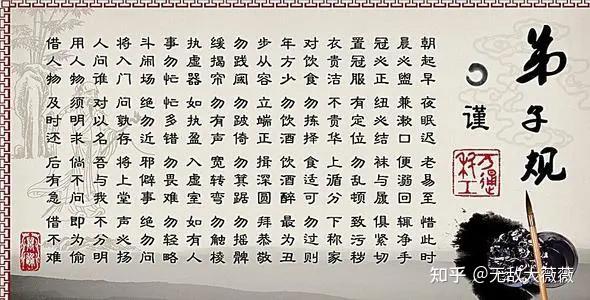 弟子规
谨
朝起早 夜眠迟 老易至 惜此时
晨必盥 兼漱口 便溺回 辄净手
冠必正 纽必结 袜与履 俱紧切
置冠服 有定位 勿乱顿 致污秽
衣贵洁 不贵华 上循分 下称家
对饮食 勿拣择 食适可 勿过则
年方少 勿饮酒 饮酒醉 最为丑
步从容 立端正 揖深圆 拜恭敬
勿践阈 勿跛倚 勿箕踞 勿摇髀
缓揭帘 勿有声 宽转弯 勿触棱
执虚器 如执盈 入虚室 如有人
事勿忙 忙多错 勿畏难 勿轻略
斗闹场 绝勿近 邪僻事 绝勿问
将入门 问孰存 将上堂 声必扬
人问谁 对以名 吾与我 不分明
用人物 须明求 倘不问 即为偷
借人物 及时还 后有急 借不难
知乎 @无敌大薇薇